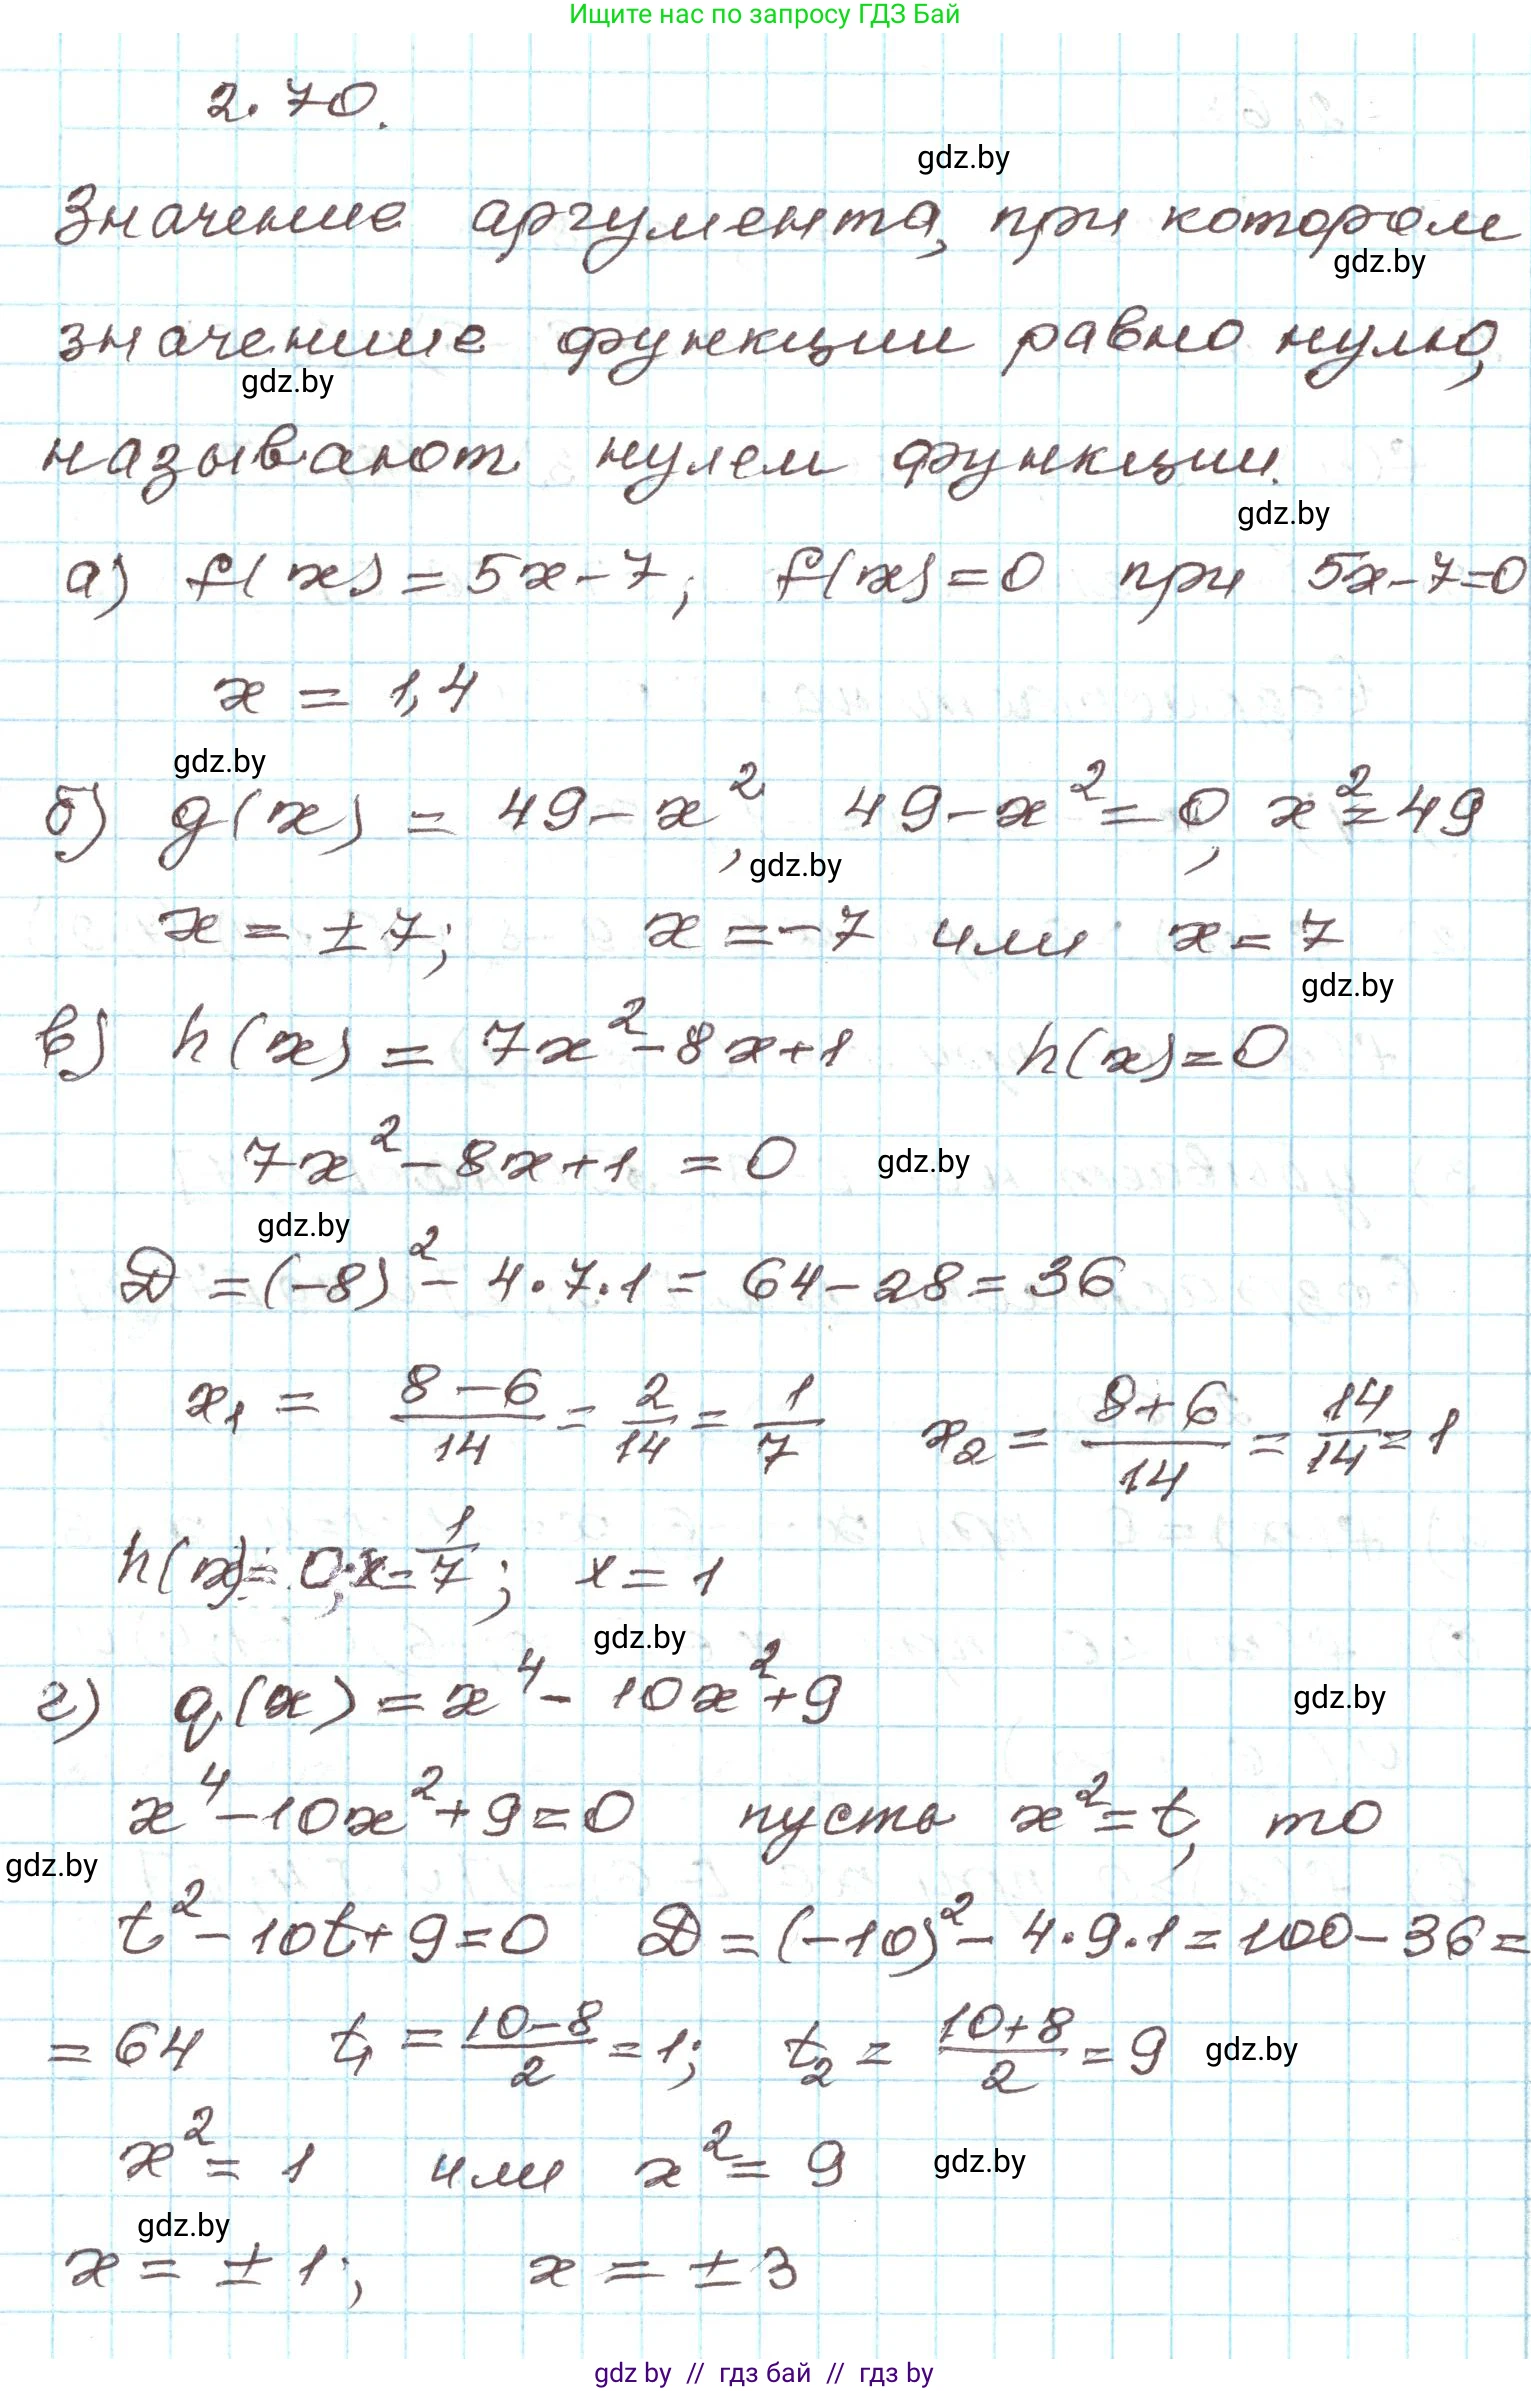 Ищите нас по запросу ГДЗ Бай
2.70.
gdz.by
Значение аргумента, при котором
gdz.by
значение функции равно нулю,
gdz.by
называют нулем функции.
gdz.by
а) f(x) = 5x - 7; f(x) = 0 при 5x - 7 = 0
x = 1,4
gdz.by
б) g(x) = 49 - x², 49 - x² = 0, x² = 49
gdz.by
x = ±7; x = -7 или x = 7
gdz.by
в) h(x) = 7x² - 8x + 1 h(x) = 0
7x² - 8x + 1 = 0 gdz.by
gdz.by
D = (-8)² - 4·7·1 = 64 - 28 = 36
x₁ = (8 - 6)/14 = 2/14 = 1/7 x₂ = (8 + 6)/14 = 14/14 = 1
h(x) = 0, x = 1/7; x = 1
gdz.by
г) q(x) = x⁴ - 10x² + 9 gdz.by
x⁴ - 10x² + 9 = 0 пусть x² = t, то
gdz.by
t² - 10t + 9 = 0 D = (-10)² - 4·9·1 = 100 - 36 =
= 64 t₁ = (10 - 8)/2 = 1; t₂ = (10 + 8)/2 = 9 gdz.by
x² = 1 или x² = 9 gdz.by
gdz.by
x = ±1; x = ±3
gdz by // гдз бай // гдз by